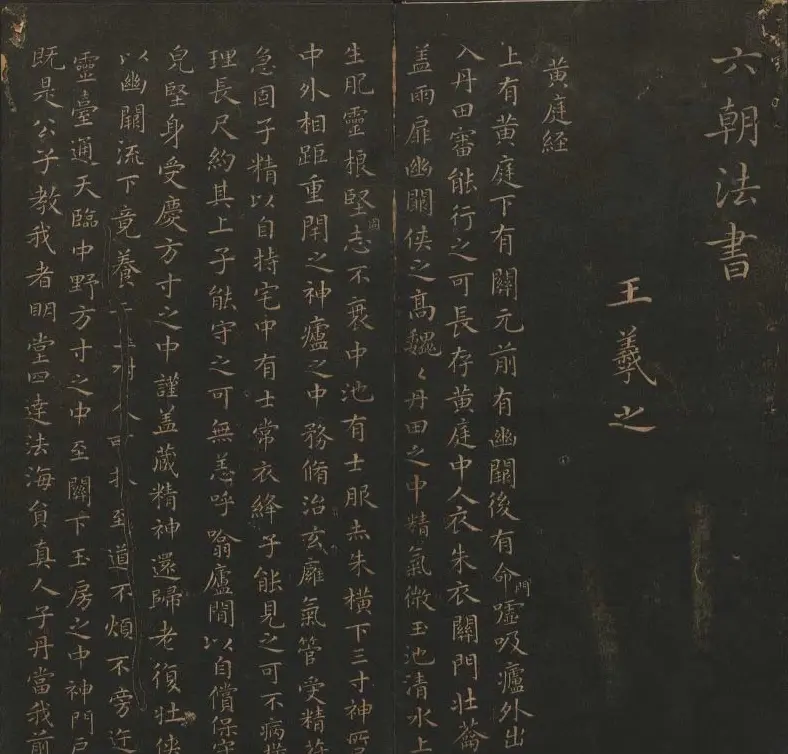 六朝法書
王羲之
黄庭経
上有黄庭下有關元前有幽闕後有命門噓吸廬外出
入丹田審能行之可長存黄庭中人衣朱衣關門壯蘥
盖兩扉幽闕侠之髙魏〻丹田之中精氣微玉池清水上
生肥靈根堅志不衰中池有士服赤朱橫下三寸神所
中外相距重閇之神廬之中務脩治玄廱氣管受精符
急固子精以自持宅中有士常衣絳子能見之可不病橫
理長尺約其上子能守之可無恙呼噏廬間以自償保守
皃堅身受慶方寸之中謹盖蔵精神還歸老復壯侠
以幽闕流下竟養子玉樹人可扶至道不煩不旁迕
靈臺通天臨中野方寸之中至關下玉房之中神門戶
既是公子教我者明堂四達法海負真人子丹當我前